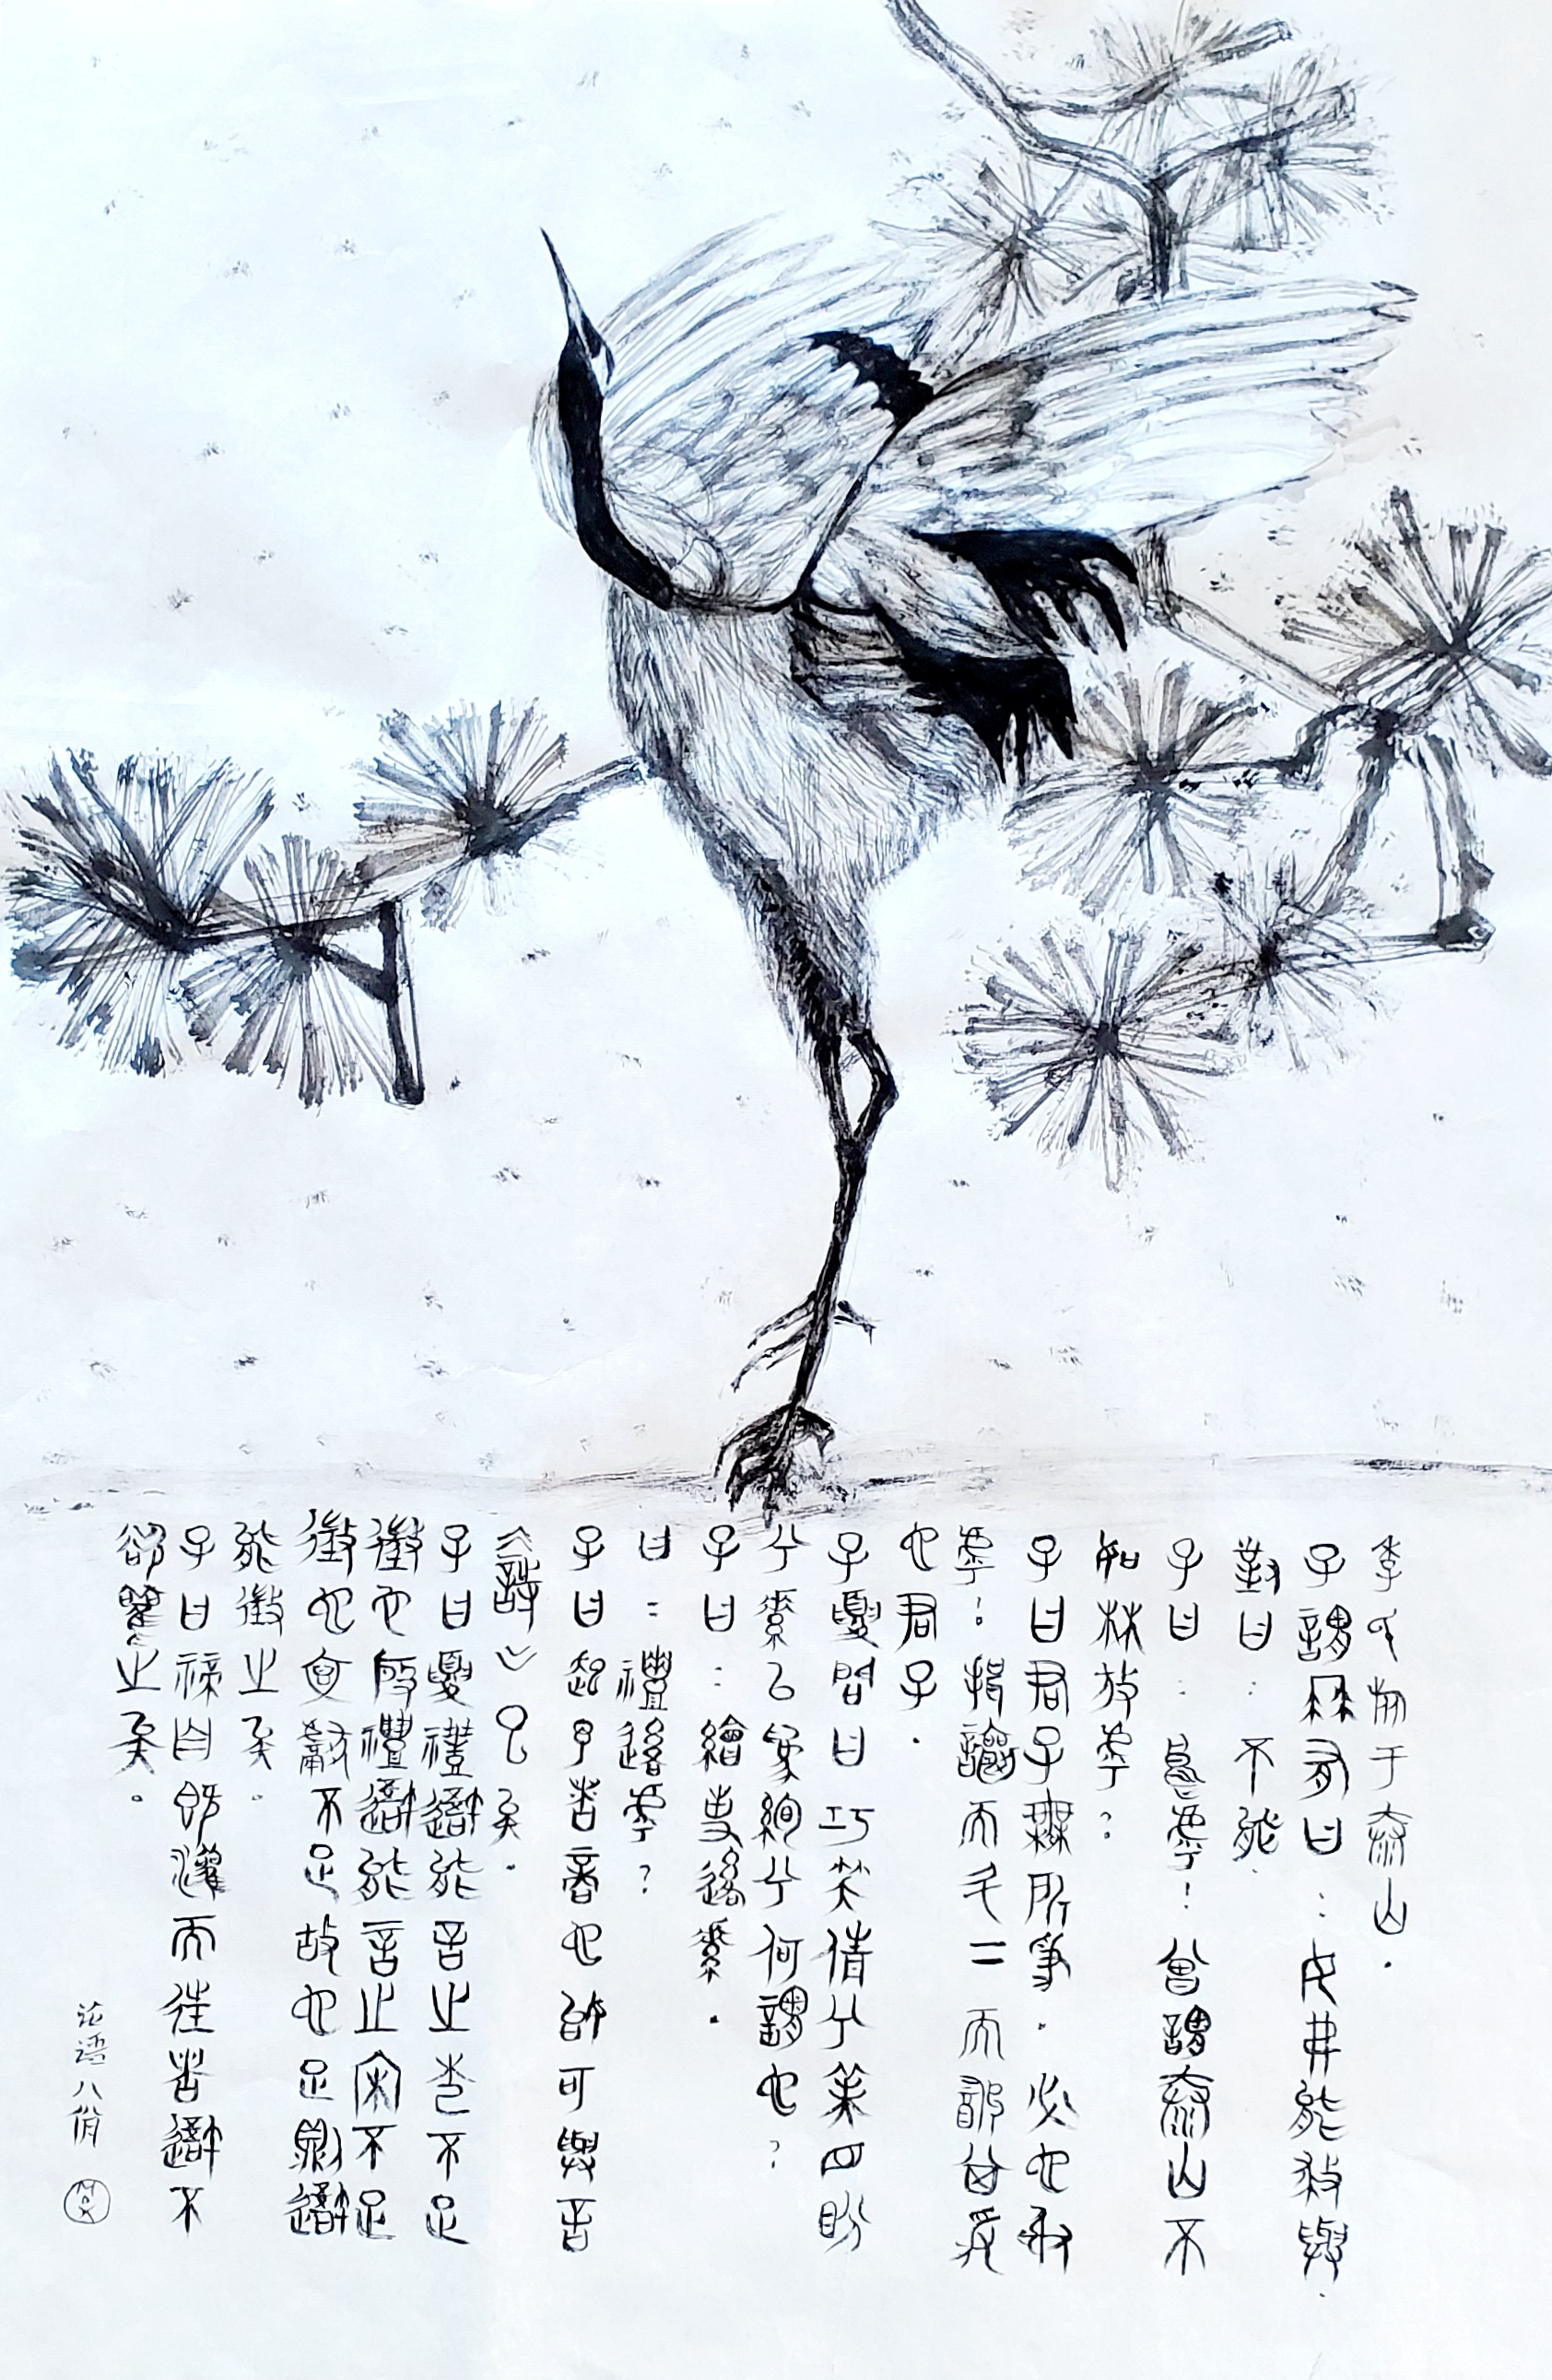 季氏旅于泰山.
子謂冉有曰：女弗能救與.
對曰：不能.
子曰：嗚乎！曾謂泰山不
如林放乎？
子曰君子無所爭.必也射
乎：揖讓而升下而飲其爭
也君子.
子夏問曰巧笑倩兮美目盼
兮素以為絢兮何謂也？
子曰：繪事後素.
曰：禮後乎？
子曰起予者商也始可與言
《詩》已矣.
子曰夏禮吾能言之杞不足
徵也殷禮吾能言之宋不足
徵也文獻不足故也足則吾
能徵之矣。
子曰禘自既灌而往者吾不
欲觀之矣。
论語八佾